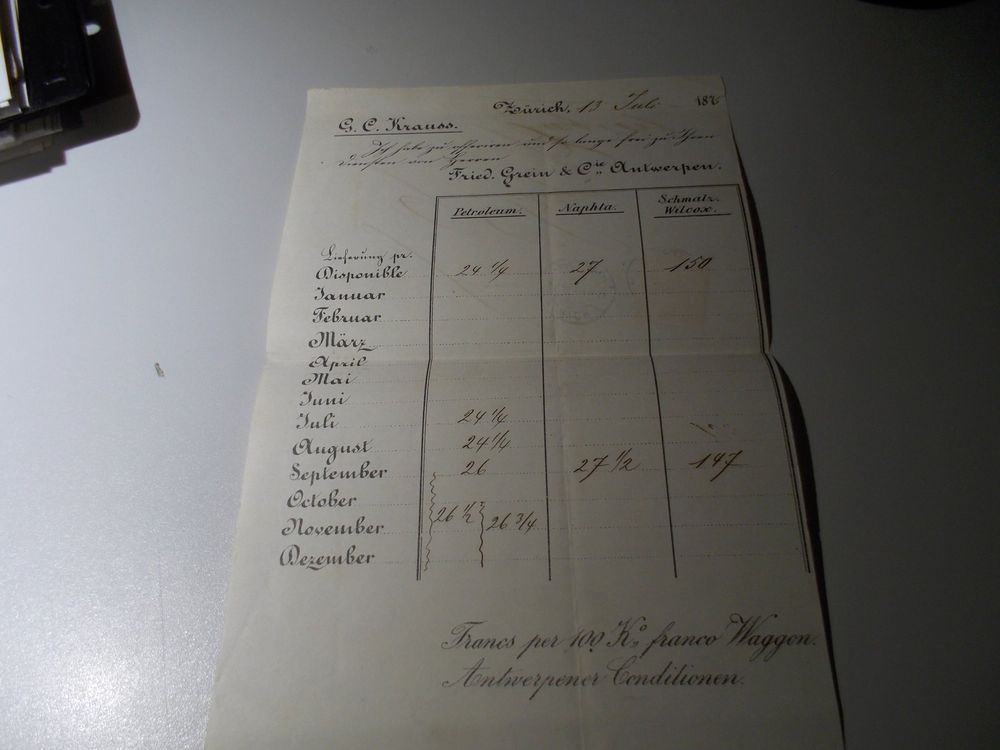 Zürich, 13 Juli 187
G. C. Krauss.
Ich habe zu offeriren und so lange frei zu Ihren
Diensten von Herren
Fried. Grein & Cie Antwerpen.
Petroleum. Naphta. Schmalz. Wilcox.
Lieferung pr.
Disponible 24 1/4 27 150
Januar
Februar
März
April
Mai
Juni
Juli 24 1/4
August 24 1/4
September 26 27 1/2 147
October
November 26 1/2 26 3/4
Dezember
Francs per 100 Ko franco Waggon.
Antwerpener Conditionen.